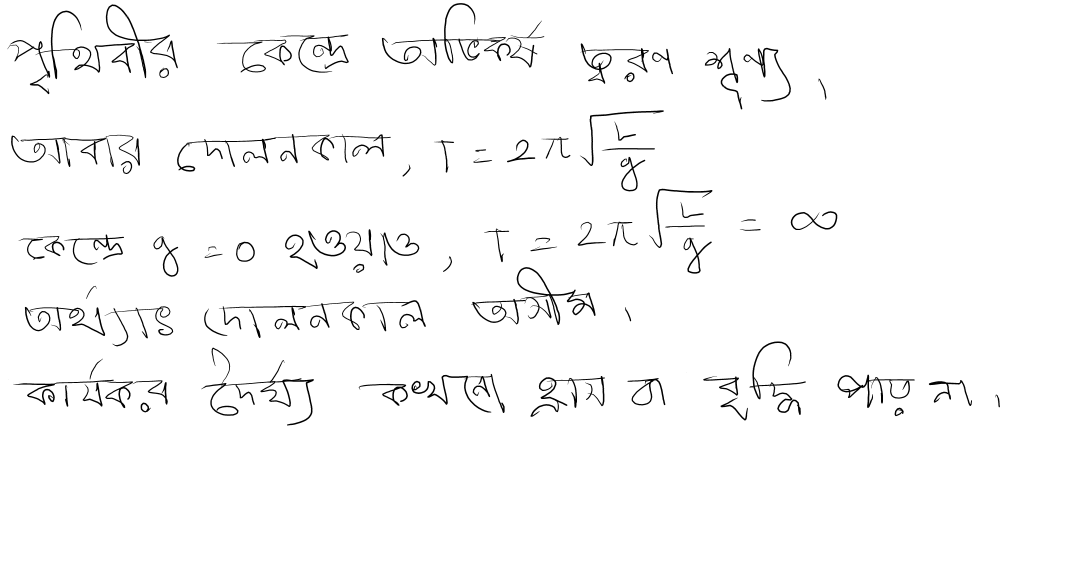 পৃথিবীর কেন্দ্রে অভিকর্ষ ত্বরণ শূণ্য।
আবার দোলনকাল, T = 2π√(L/g)
কেন্দ্রে g = 0 হওয়াও, T = 2π√(L/g) = ∞
অর্থ্যাৎ দোলনকাল অসীম।
কার্যকর দৈর্ঘ্য কখনো হ্রাস বা বৃদ্ধি পায় না।